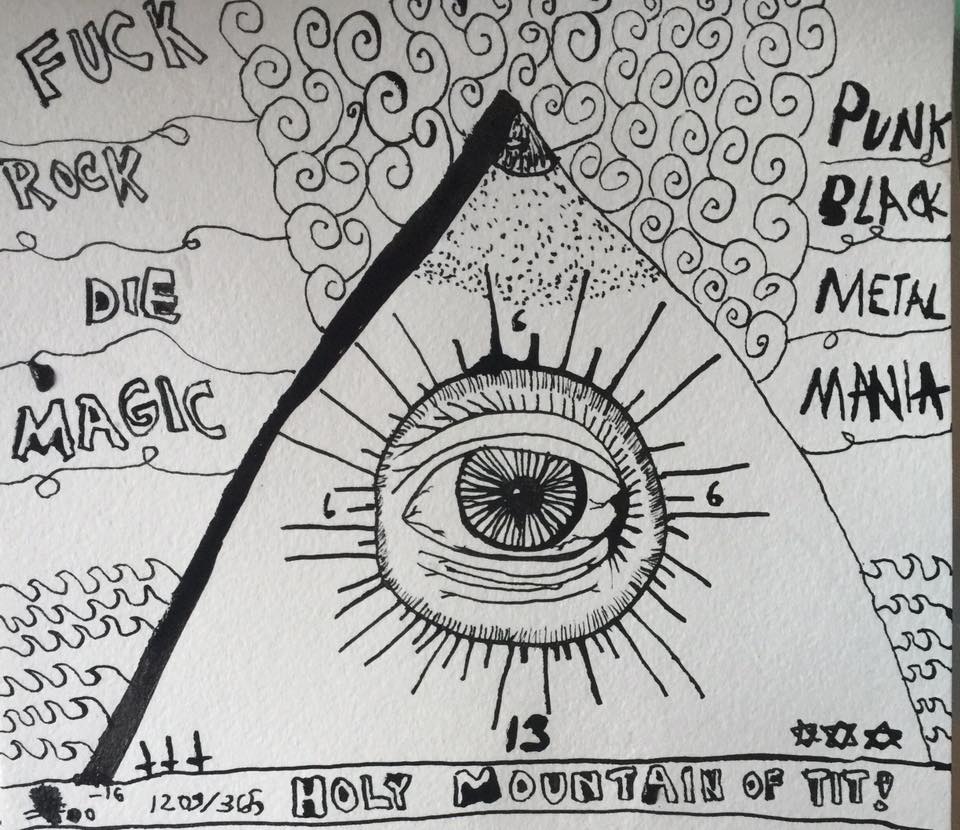 FUCK
ROCK
DIE
MAGIC
PUNK
BLACK
METAL
MANIA
6
6
6
13
-16
1209/365
HOLY MOUNTAIN OF TIT!